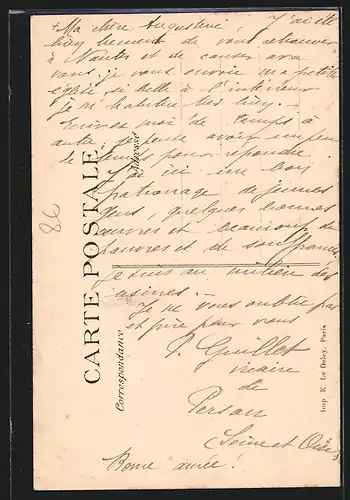 + Ma chère Augustine, J'ai été
bien heureux de vous retrouver
à Nantes et de causer avec
vous. je vous envoie ma petite
église si belle à l'intérieur
je m'habitue très bien.
Ecrivez moi de temps à
autre, je pense avoir un peu
de temps pour répondre
J'ai ici un bon
patronage de jeunes
gens, quelques bonnes
œuvres et beaucoup de
pauvres et de souffrances
je suis au milieu des
usines. -
Je ne vous oublie pas
et prie pour vous
P. Guillet
vicaire
de
Persan
(Seine et Oise)
Bonne année !
86
CARTE POSTALE
Correspondance
Adresse
Imp. E. Le Deley, Paris